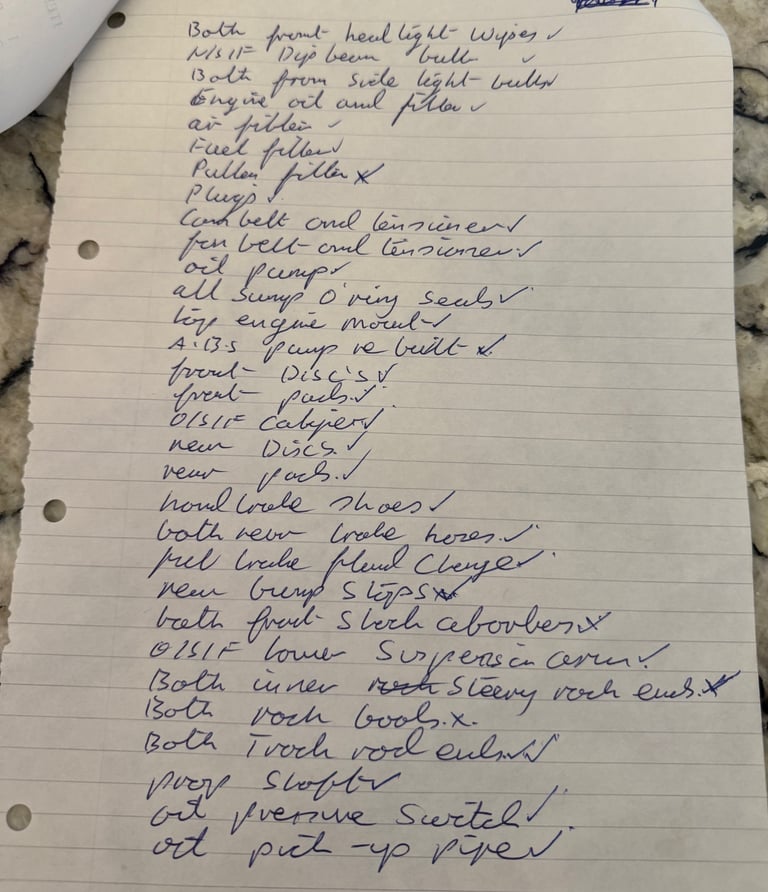 Both front headlight Wipes ✓
N/S/F Dip beam bulb ✓
Both from side light bulbs ✓
Engine oil and filter ✓
air filter ✓
Fuel filter ✓
Pullen filter x
Plugs ✓
Cam belt and tensioner ✓
fan belt and tensioner ✓
oil pump ✓
all Sump O'ring Seals ✓
top engine mount ✓
A.B.S pump re built x
front Discs ✓
front pads ✓
O/S/F Caliper ✓
rear Discs ✓
rear pads ✓
hand brake shoes ✓
both rear brake hoses ✓
full brake fluid Change ✓
rear bump Stops x
both front Shock aborbers x
O/S/F lower Suspension arm ✓
Both inner Steery rack ends x
Both rack boots x
Both Track rod ends ✓✓
prop Shaft ✓
oil pressure Switch ✓
oil pick-up pipe ✓